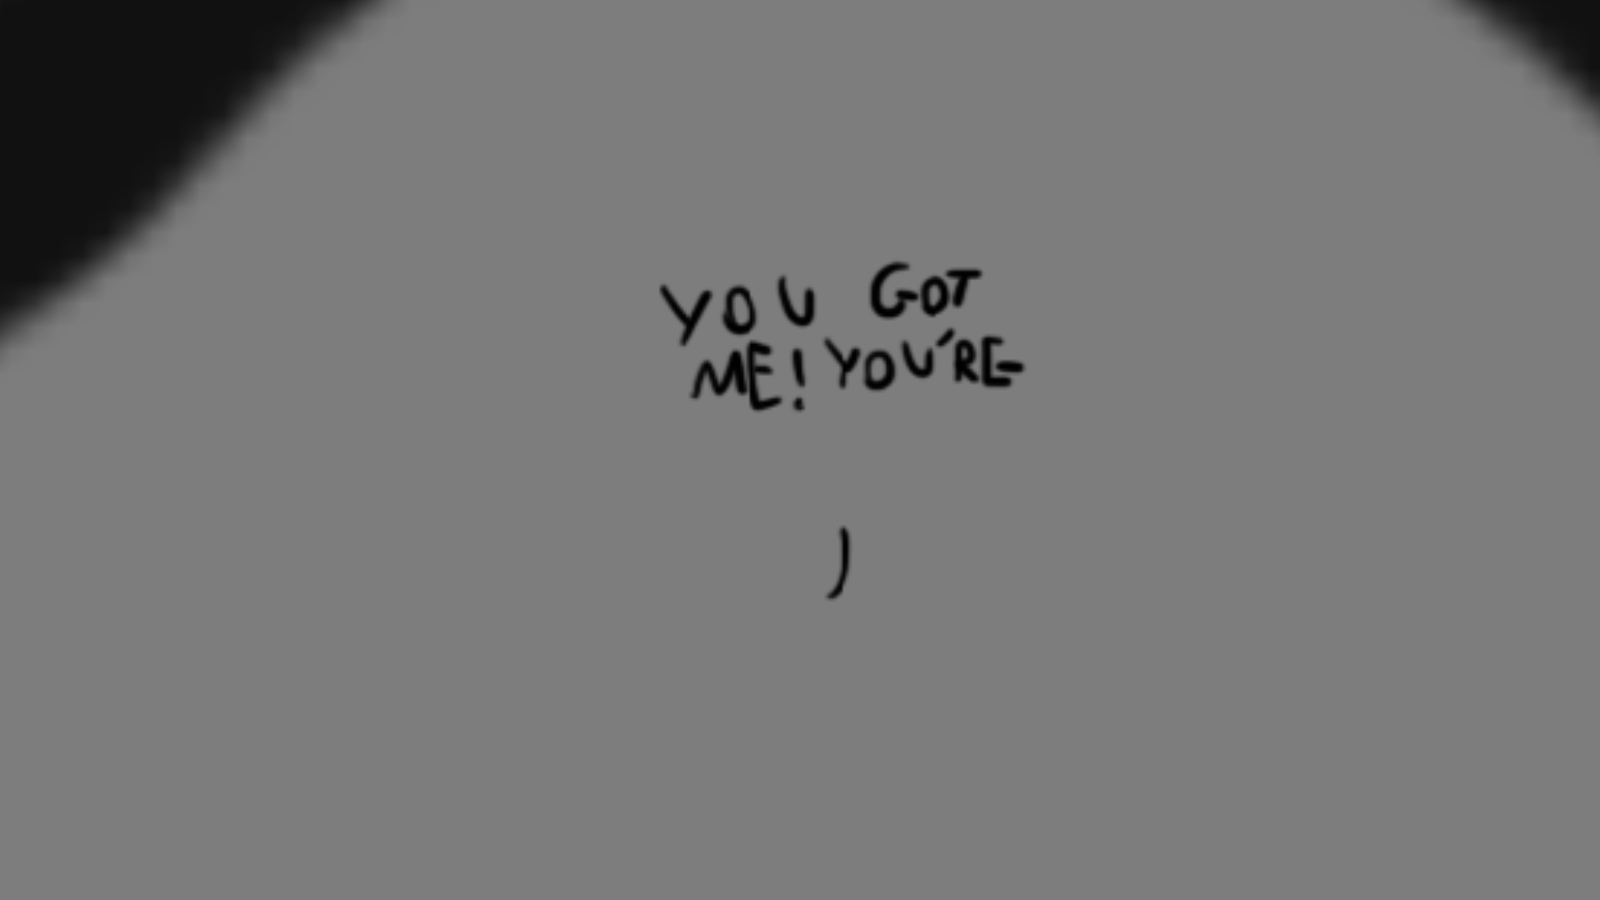 YOU GOT
ME! YOU'RE-